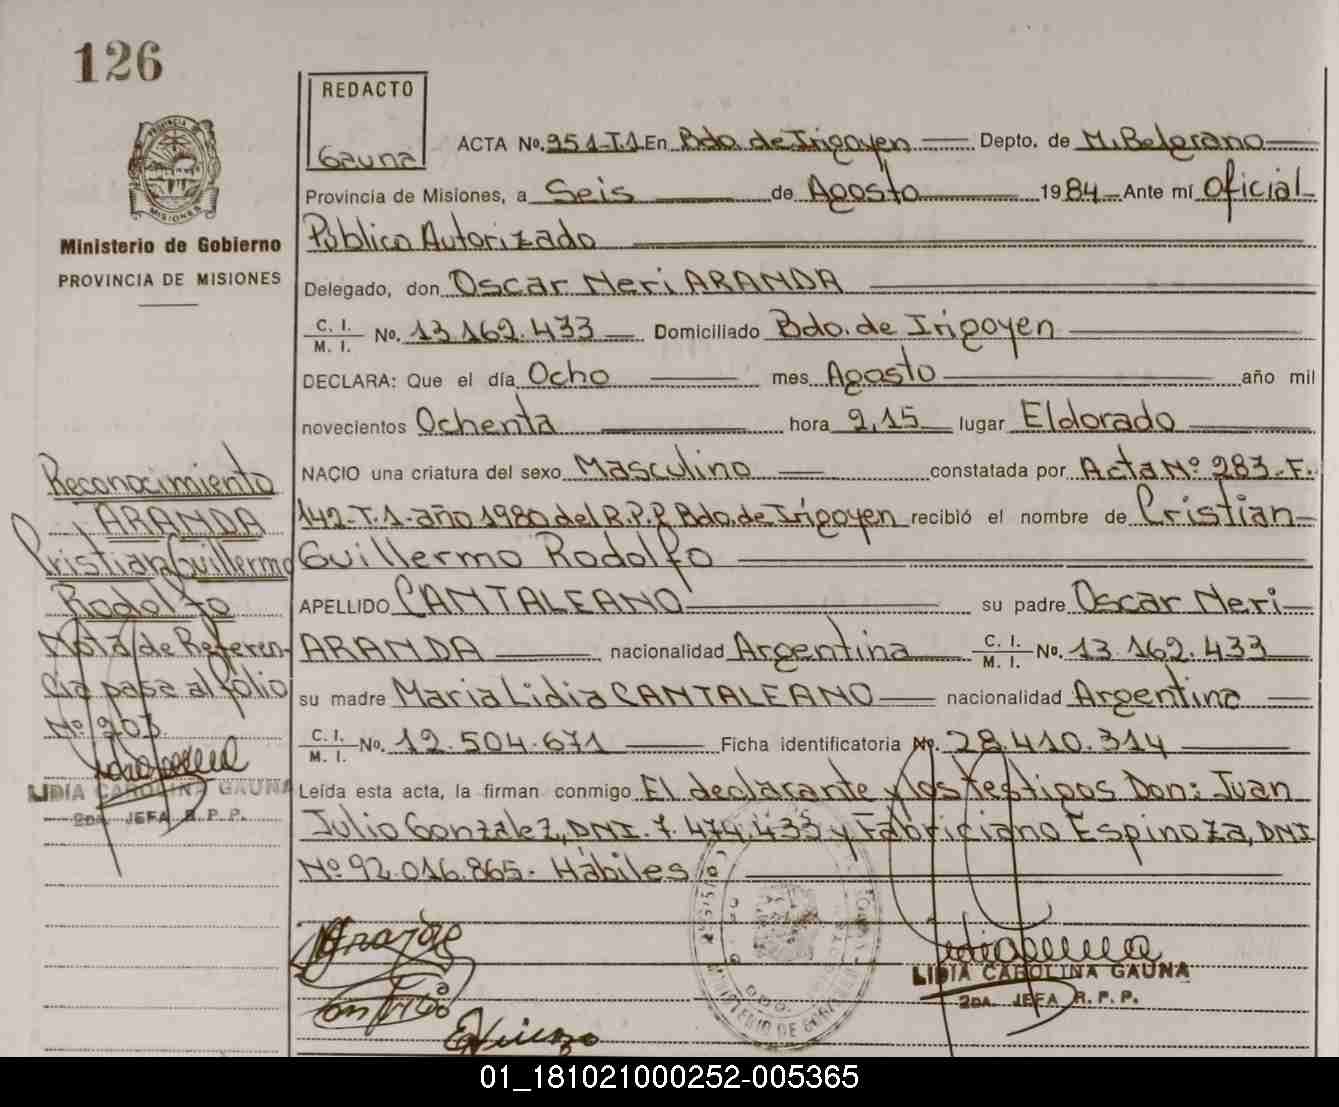 126
REDACTO
Gauna
PROVINCIA DE
MISIONES
Ministerio de Gobierno
PROVINCIA DE MISIONES
ACTA No. 951-T.1 En Bdo. de Irigoyen Depto. de M. Belgrano
Provincia de Misiones, a Seis de Agosto 1984 Ante mí Oficial
Público Autorizado
Delegado, don Oscar Neri ARANDA
C. I.
M. I. No. 13.162.433 Domiciliado Bdo. de Irigoyen
DECLARA: Que el día Ocho mes Agosto año mil
novecientos Ochenta hora 2,15 lugar Eldorado
NACIO una criatura del sexo Masculino constatada por Acta Nº 283-F.
142-T.1-año 1980 del R.P.P. Bdo. de Irigoyen recibió el nombre de Cristian
Guillermo Rodolfo
APELLIDO CANTALEANO su padre Oscar Neri
ARANDA nacionalidad Argentina C. I.
M. I. No. 13.162.433
su madre Maria Lidia CANTALEANO nacionalidad Argentina
C. I.
M. I. No. 12.504.671 Ficha identificatoria No. 28.410.314
Leída esta acta, la firman conmigo El declarante y los testigos Don: Juan
Julio Gonzalez, DNI. 7.474.435 y Fabriciano Espinoza, DNI
Nº 92.016.865. Hábiles
Reconocimiento
ARANDA
Cristian Guillermo
Rodolfo
Nota de Referen-
cia pasa al folio
Nº 203
LIDIA CAROLINA GAUNA
2DA. JEFA R. P. P.
MINISTERIO DE GOBIERNO
LIDIA CAROLINA GAUNA
2DA. JEFA R. P. P.
01_181021000252-005365